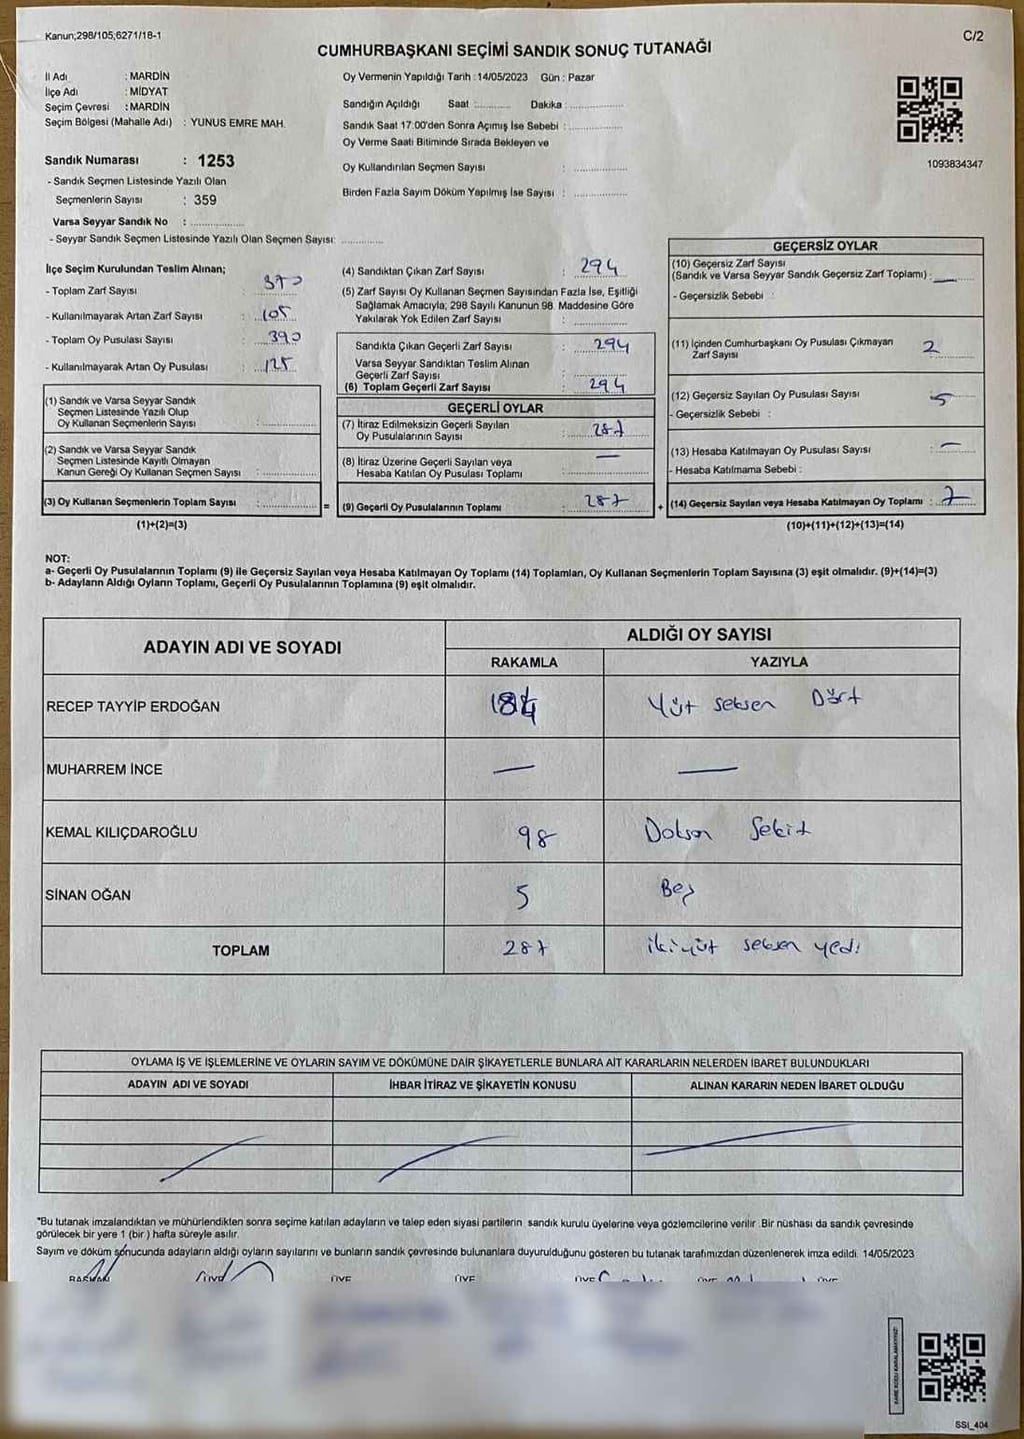 Kanun;298/105,6271/18-1
C/2
CUMHURBAŞKANI SEÇİMİ SANDIK SONUÇ TUTANAĞI
İl Adı : MARDİN
İlçe Adı : MİDYAT
Seçim Çevresi : MARDİN
Seçim Bölgesi (Mahalle Adı) : YUNUS EMRE MAH.
Oy Vermenin Yapıldığı Tarih : 14/05/2023 Gün : Pazar
Sandığın Açıldığı Saat :............ Dakika :..............
Sandık Saat 17:00'den Sonra Açımış İse Sebebi :..............
Oy Verme Saati Bitiminde Sırada Bekleyen ve
Oy Kullandırılan Seçmen Sayısı : ..............
Birden Fazla Sayım Döküm Yapılmış İse Sayısı : ..............
1093834347
Sandık Numarası : 1253
- Sandık Seçmen Listesinde Yazılı Olan
Seçmenlerin Sayısı : 359
Varsa Seyyar Sandık No : ..............
- Seyyar Sandık Seçmen Listesinde Yazılı Olan Seçmen Sayısı: ...........
İlçe Seçim Kurulundan Teslim Alınan;
- Toplam Zarf Sayısı : 370
- Kullanılmayarak Artan Zarf Sayısı : 105
- Toplam Oy Pusulası Sayısı : 390
- Kullanılmayarak Artan Oy Pusulası : 125
(1) Sandık ve Varsa Seyyar Sandık
Seçmen Listesinde Yazılı Olup
Oy Kullanan Seçmenlerin Sayısı :..............
(2) Sandık ve Varsa Seyyar Sandık
Seçmen Listesinde Kayıtlı Olmayan
Kanun Gereği Oy Kullanan Seçmen Sayısı :..............
(3) Oy Kullanan Seçmenlerin Toplam Sayısı :..............
(1)+(2)=(3)
(4) Sandıktan Çıkan Zarf Sayısı : 294
(5) Zarf Sayısı Oy Kullanan Seçmen Sayısından Fazla İse, Eşitliği
Sağlamak Amacıyla; 298 Sayılı Kanunun 98. Maddesine Göre
Yakılarak Yok Edilen Zarf Sayısı : ..............
Sandıkta Çıkan Geçerli Zarf Sayısı : 294
Varsa Seyyar Sandıktan Teslim Alınan
Geçerli Zarf Sayısı :
(6) Toplam Geçerli Zarf Sayısı : 294
GEÇERLİ OYLAR
(7) İtiraz Edilmeksizin Geçerli Sayılan
Oy Pusulalarının Sayısı : 287
(8) İtiraz Üzerine Geçerli Sayılan veya
Hesaba Katılan Oy Pusulası Toplamı : —
= (9) Geçerli Oy Pusulalarının Toplamı : 287
GEÇERSİZ OYLAR
(10) Geçersiz Zarf Sayısı
(Sandık ve Varsa Seyyar Sandık Geçersiz Zarf Toplamı) : —
- Geçersizlik Sebebi :
(11) İçinden Cumhurbaşkanı Oy Pusulası Çıkmayan
Zarf Sayısı : 2
(12) Geçersiz Sayılan Oy Pusulası Sayısı : 5
- Geçersizlik Sebebi :
(13) Hesaba Katılmayan Oy Pusulası Sayısı : —
- Hesaba Katılmama Sebebi :
+ (14) Geçersiz Sayılan veya Hesaba Katılmayan Oy Toplamı : 7
(10)+(11)+(12)+(13)=(14)
NOT:
a- Geçerli Oy Pusulalarının Toplamı (9) ile Geçersiz Sayılan veya Hesaba Katılmayan Oy Toplamı (14) Toplamları, Oy Kullanan Seçmenlerin Toplam Sayısına (3) eşit olmalıdır. (9)+(14)=(3)
b- Adayların Aldığı Oyların Toplamı, Geçerli Oy Pusulalarının Toplamına (9) eşit olmalıdır.
ADAYIN ADI VE SOYADI
ALDIĞI OY SAYISI
RAKAMLA YAZIYLA
RECEP TAYYİP ERDOĞAN 184 Yüz Seksen Dört
MUHARREM İNCE — —
KEMAL KILIÇDAROĞLU 98 Doksan Sekiz
SİNAN OĞAN 5 Beş
TOPLAM 287 ikiyüz seksen yedi
OYLAMA İŞ VE İŞLEMLERİNE VE OYLARIN SAYIM VE DÖKÜMÜNE DAİR ŞİKAYETLERLE BUNLARA AİT KARARLARIN NELERDEN İBARET BULUNDUKLARI
ADAYIN ADI VE SOYADI İHBAR İTİRAZ VE ŞİKAYETİN KONUSU ALINAN KARARIN NEDEN İBARET OLDUĞU
*Bu tutanak imzalandıktan ve mühürlendikten sonra seçime katılan adayların ve talep eden siyasi partilerin sandık kurulu üyelerine veya gözlemcilerine verilir. Bir nüshası da sandık çevresinde
görülecek bir yere 1 (bir ) hafta süreyle asılır.
Sayım ve döküm sonucunda adayların aldığı oyların sayılarını ve bunların sandık çevresinde bulunanlara duyurulduğunu gösteren bu tutanak tarafımızdan düzenlenerek imza edildi. 14/05/2023
SSI_404